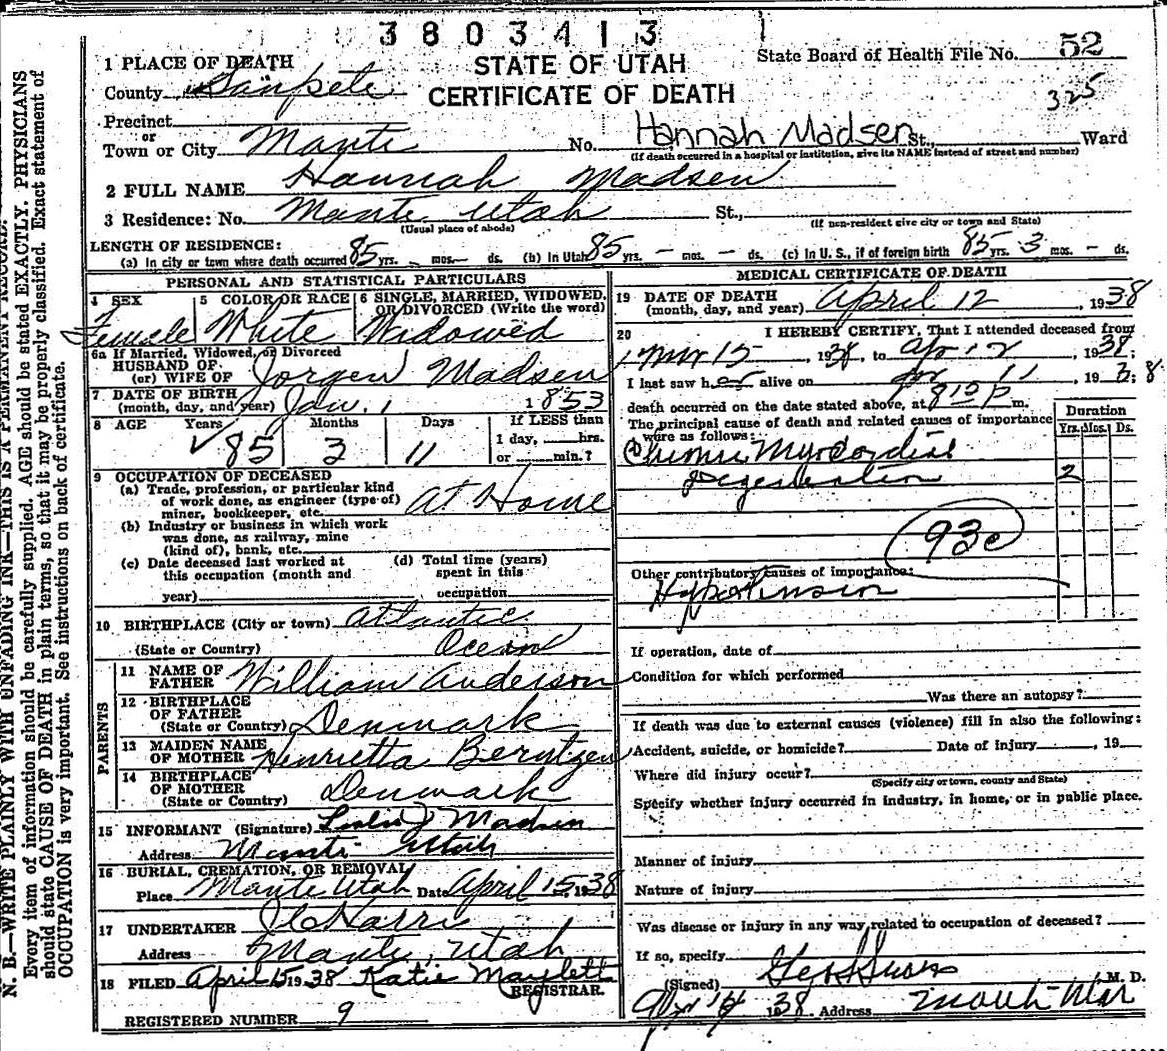 3803413
1 PLACE OF DEATH
STATE OF UTAH
State Board of Health File No. 52
County Sanpete
CERTIFICATE OF DEATH
325
Precinct
or
Town or City Manti No. Hannah Madsen St., Ward
(If death occurred in a hospital or institution, give its NAME instead of street and number)
2 FULL NAME Hannah Madsen
3 Residence: No. Manti Utah St.,
(Usual place of abode) (If non-resident give city or town and State)
LENGTH OF RESIDENCE:
(a) In city or town where death occurred 85 yrs. mos. — ds. (b) In Utah 85 yrs. — mos. — ds. (c) In U. S., if of foreign birth 85 yrs. 3 mos. — ds.
PERSONAL AND STATISTICAL PARTICULARS
4 SEX
Female
5 COLOR OR RACE
White
6 SINGLE, MARRIED, WIDOWED,
OR DIVORCED (Write the word)
Widowed
6a If Married, Widowed, or Divorced
HUSBAND OF
(or) WIFE OF Jorgen Madsen
7 DATE OF BIRTH
(month, day, and year) Jan. 1 1853
8 AGE Years 85 Months 3 Days 11
If LESS than
1 day, hrs.
or min.?
9 OCCUPATION OF DECEASED
(a) Trade, profession, or particular kind
of work done, as engineer (type of)
miner, bookkeeper, etc. At Home
(b) Industry or business in which work
was done, as railway, mine
(kind of), bank, etc.
(c) Date deceased last worked at
this occupation (month and
year)
(d) Total time (years)
spent in this
occupation
10 BIRTHPLACE (City or town) Atlantic
(State or Country) Ocean
PARENTS
11 NAME OF
FATHER William Anderson
12 BIRTHPLACE
OF FATHER
(State or Country) Denmark
13 MAIDEN NAME
OF MOTHER Henrietta Berntzen
14 BIRTHPLACE
OF MOTHER
(State or Country) Denmark
15 INFORMANT (Signature) Madsen
Address Manti Utah
16 BURIAL, CREMATION, OR REMOVAL
Place Manti Utah Date April 15, 1938
17 UNDERTAKER
Address Manti, Utah
18 FILED April 15 1938 Katie Maylett
REGISTRAR.
REGISTERED NUMBER 9
MEDICAL CERTIFICATE OF DEATH
19 DATE OF DEATH
(month, day, and year) April 12, 1938
20 I HEREBY CERTIFY, That I attended deceased from
Mar 15, 1938, to Apr 12, 1938;
I last saw her alive on Apr 11, 1938;
death occurred on the date stated above, at 8 10 P m.
The principal cause of death and related causes of importance
were as follows:
Duration
Yrs. Mos. Ds.
Chronic Myocardial
Degeneration 2
93c
Other contributory causes of importance:
Hypertension
If operation, date of
Condition for which performed
Was there an autopsy?
If death was due to external causes (violence) fill in also the following:
Accident, suicide, or homicide? Date of injury, 19
Where did injury occur?
(Specify city or town, county and State)
Specify whether injury occurred in industry, in home, or in public place.
Manner of injury
Nature of injury
Was disease or injury in any way related to occupation of deceased?
If so, specify
(Signed) M. D.
1938 Address
N. B.—WRITE PLAINLY WITH UNFADING INK—THIS IS A PERMANENT RECORD.
Every item of information should be carefully supplied. AGE should be stated EXACTLY. PHYSICIANS
should state CAUSE OF DEATH in plain terms, so that it may be properly classified. Exact statement of
OCCUPATION is very important. See instructions on back of certificate.